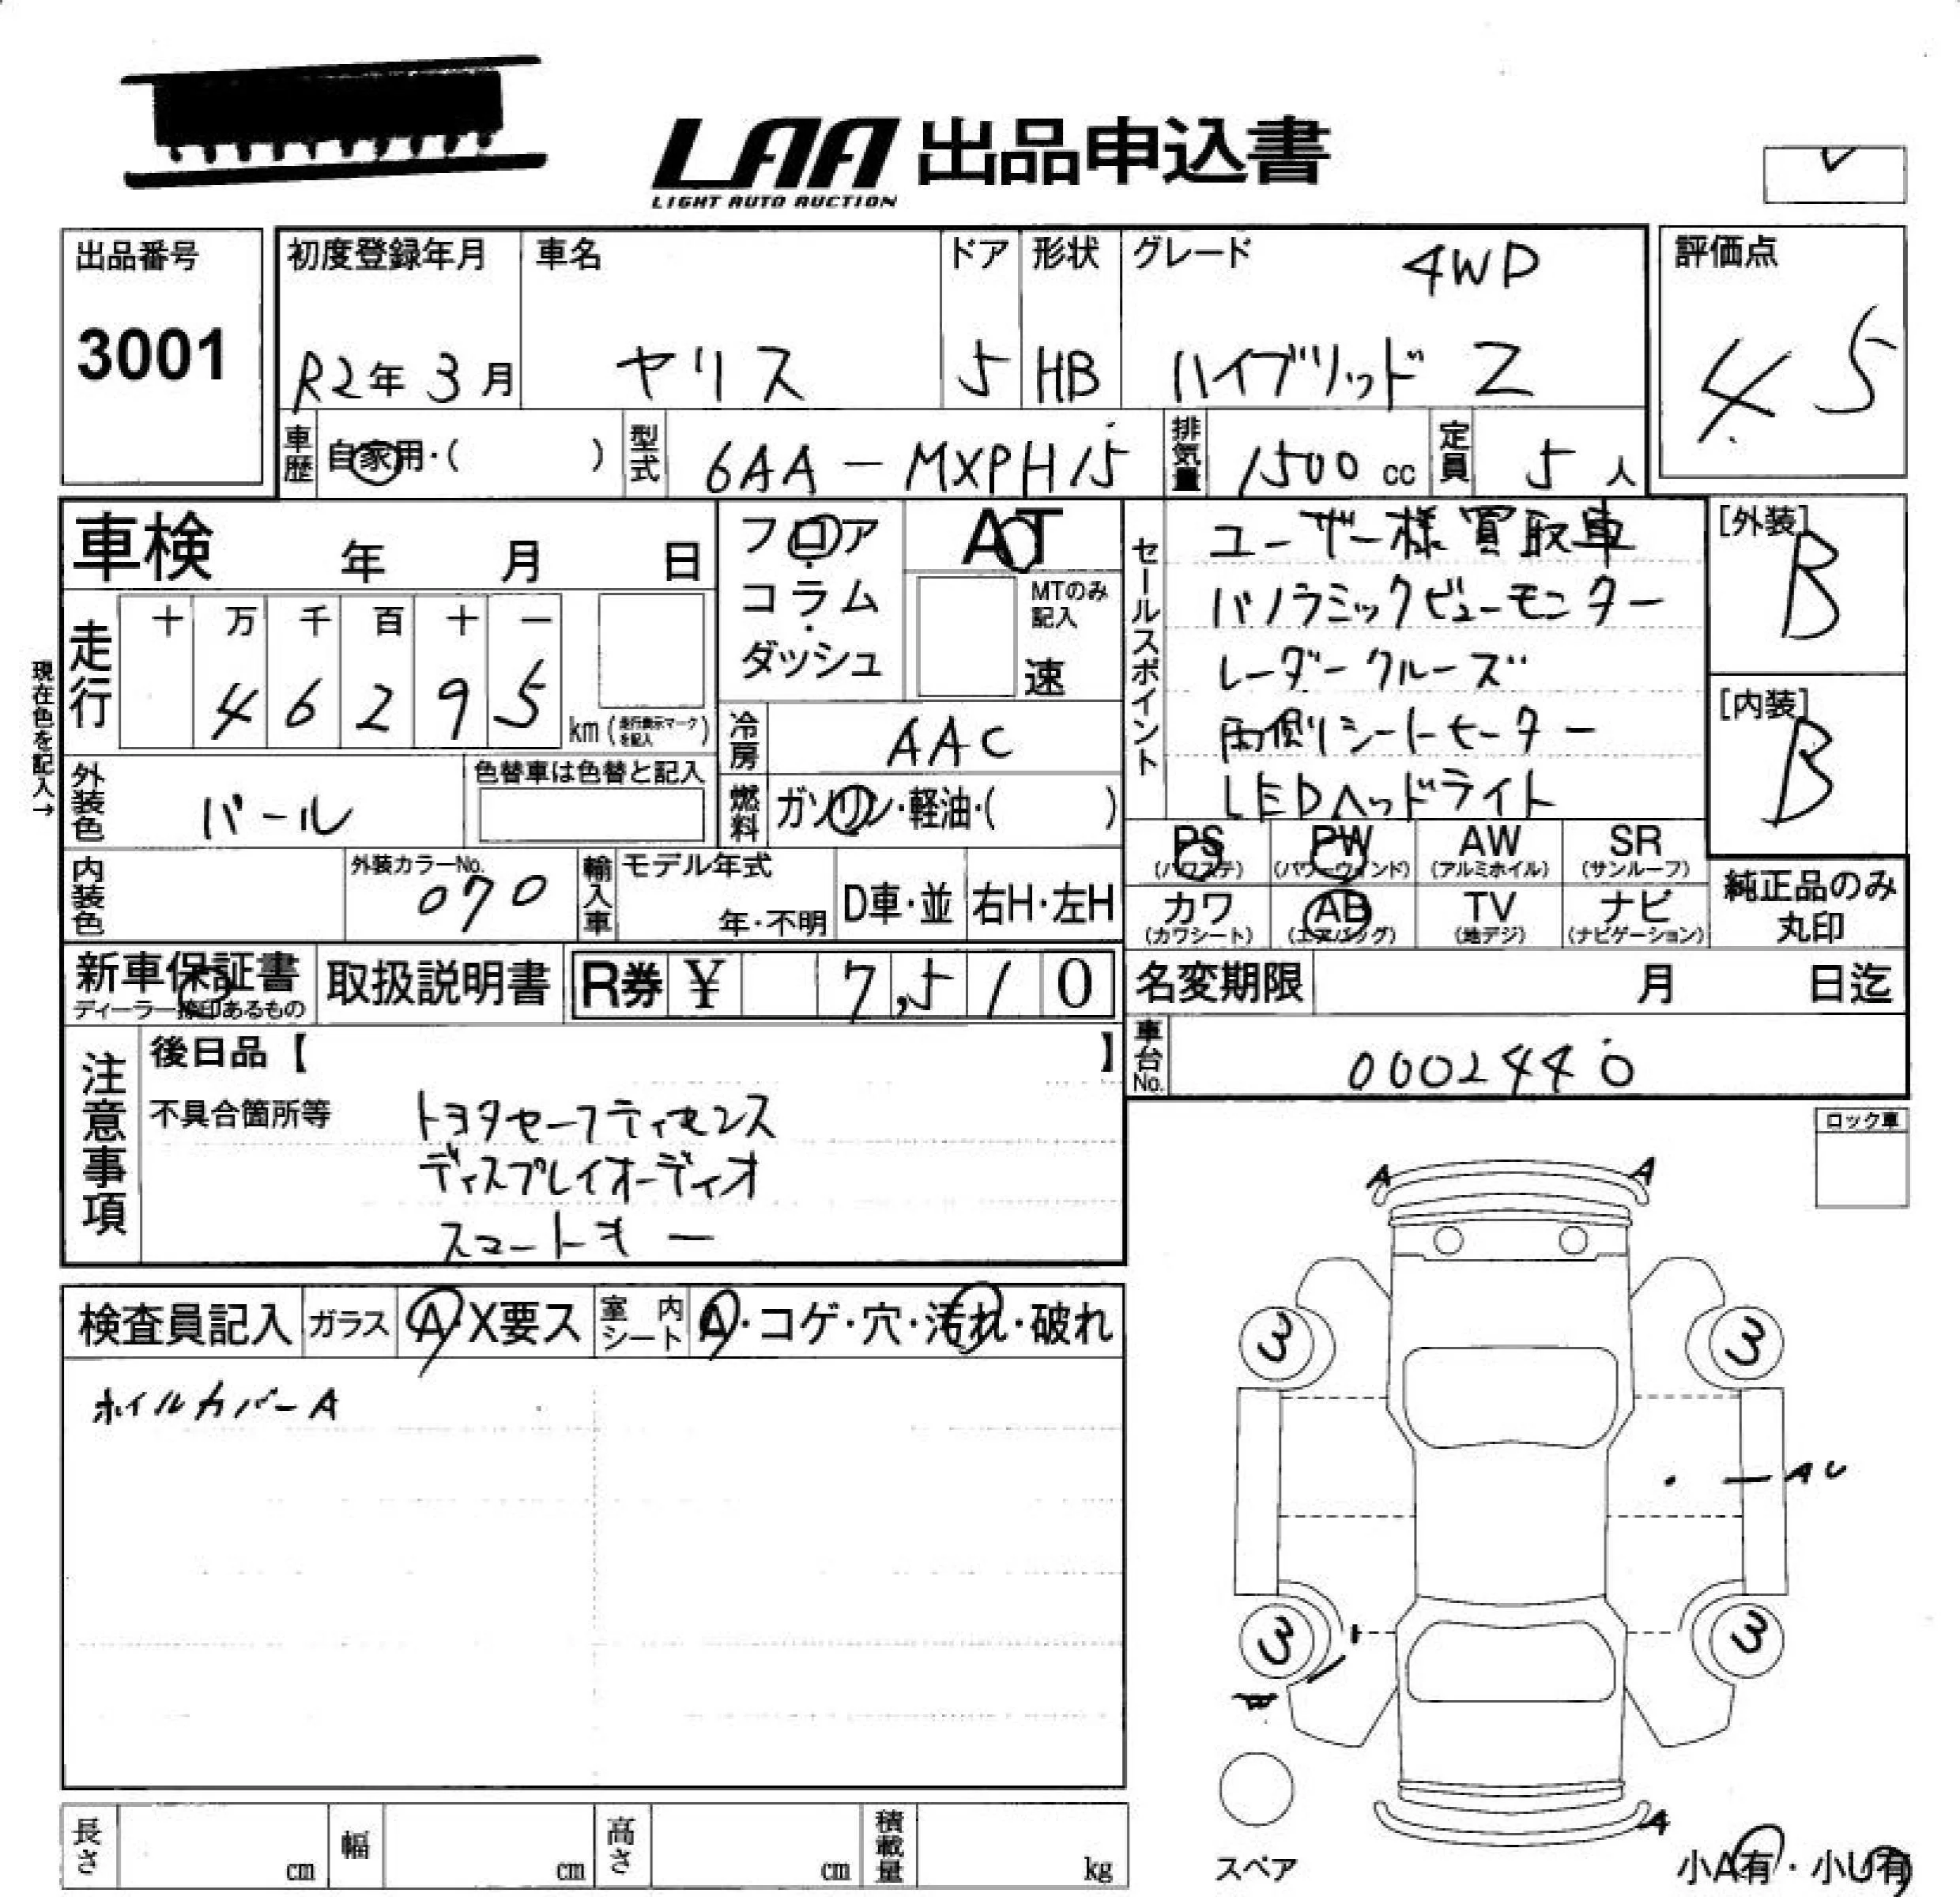 LAA 出品申込書
LIGHT AUTO AUCTION
出品番号
3001
初度登録年月
R2年 3月
車名
ヤリス
ドア
5
形状
HB
グレード
4WD
ハイブリッド Z
評価点
4.5
車歴
自家用・( )
型式
6AA-MXPH15
排気量
1500 cc
定員
5 人
車検 年 月 日
フロア
コラム
ダッシュ
AT
MTのみ
記入
速
セールスポイント
ユーザー様買取車
パノラミックビューモニター
レーダークルーズ
両側シートヒーター
LEDヘッドライト
[外装]
B
[内装]
B
現在色を記入→
走行
十 万 千 百 十 一
4 6 2 9 5
km (走行表示マークを記入)
冷房
AAC
外装色
パール
色替車は色替と記入
燃料
ガソリン・軽油・( )
内装色
外装カラーNo.
070
輸入車
モデル年式
年・不明
D車・並
右H・左H
PS
(パワステ)
PW
(パワーウィンド)
AW
(アルミホイル)
SR
(サンルーフ)
カワ
(カワシート)
AB
(エアバッグ)
TV
(地デジ)
ナビ
(ナビゲーション)
純正品のみ
丸印
新車保証書
ディーラー捺印あるもの
取扱説明書
R券 ¥ 7,510
名変期限 月 日迄
車台No.
0002440
注意事項
後日品【 】
不具合箇所等
トヨタセーフティセンス
ディスプレイオーディオ
スマートキー
ロック車
検査員記入
ガラス
A・X要ス
室内
シート
A・コゲ・穴・汚れ・破れ
ホイルカバーA
A
A
3
3
AU
3
3
A
スペア
小A有・小U有
長さ
cm
幅
cm
高さ
cm
積載量
kg